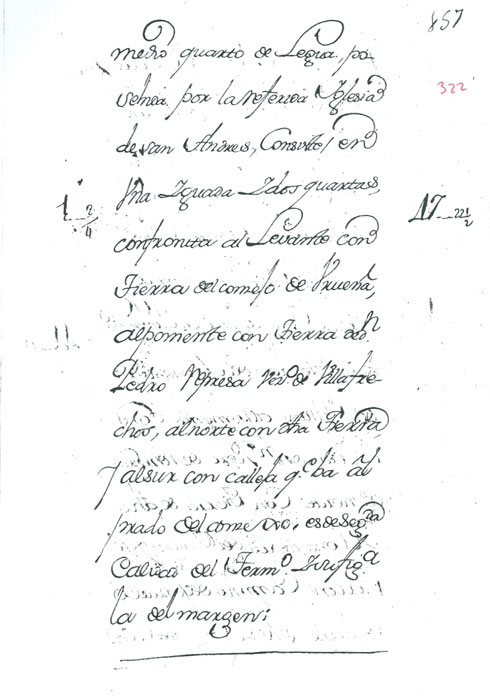 857
322
medio quarto de Legua, po-
sehida por la referida Yglesia
de san Andres, Consiste, en
Vna Yguada Y dos quartas,
1 2/4
17 22 1/2
confronta al Levante con
Tierra del comejo de Vrueña,
al poniente con Tierra de Dn
Pedro Represa vezo de Villafre-
chos, al norte con otra Tierra,
Y al sur con calleja qe ba al
prado del come
Calidad del Termo Y su fig a
la del margen: